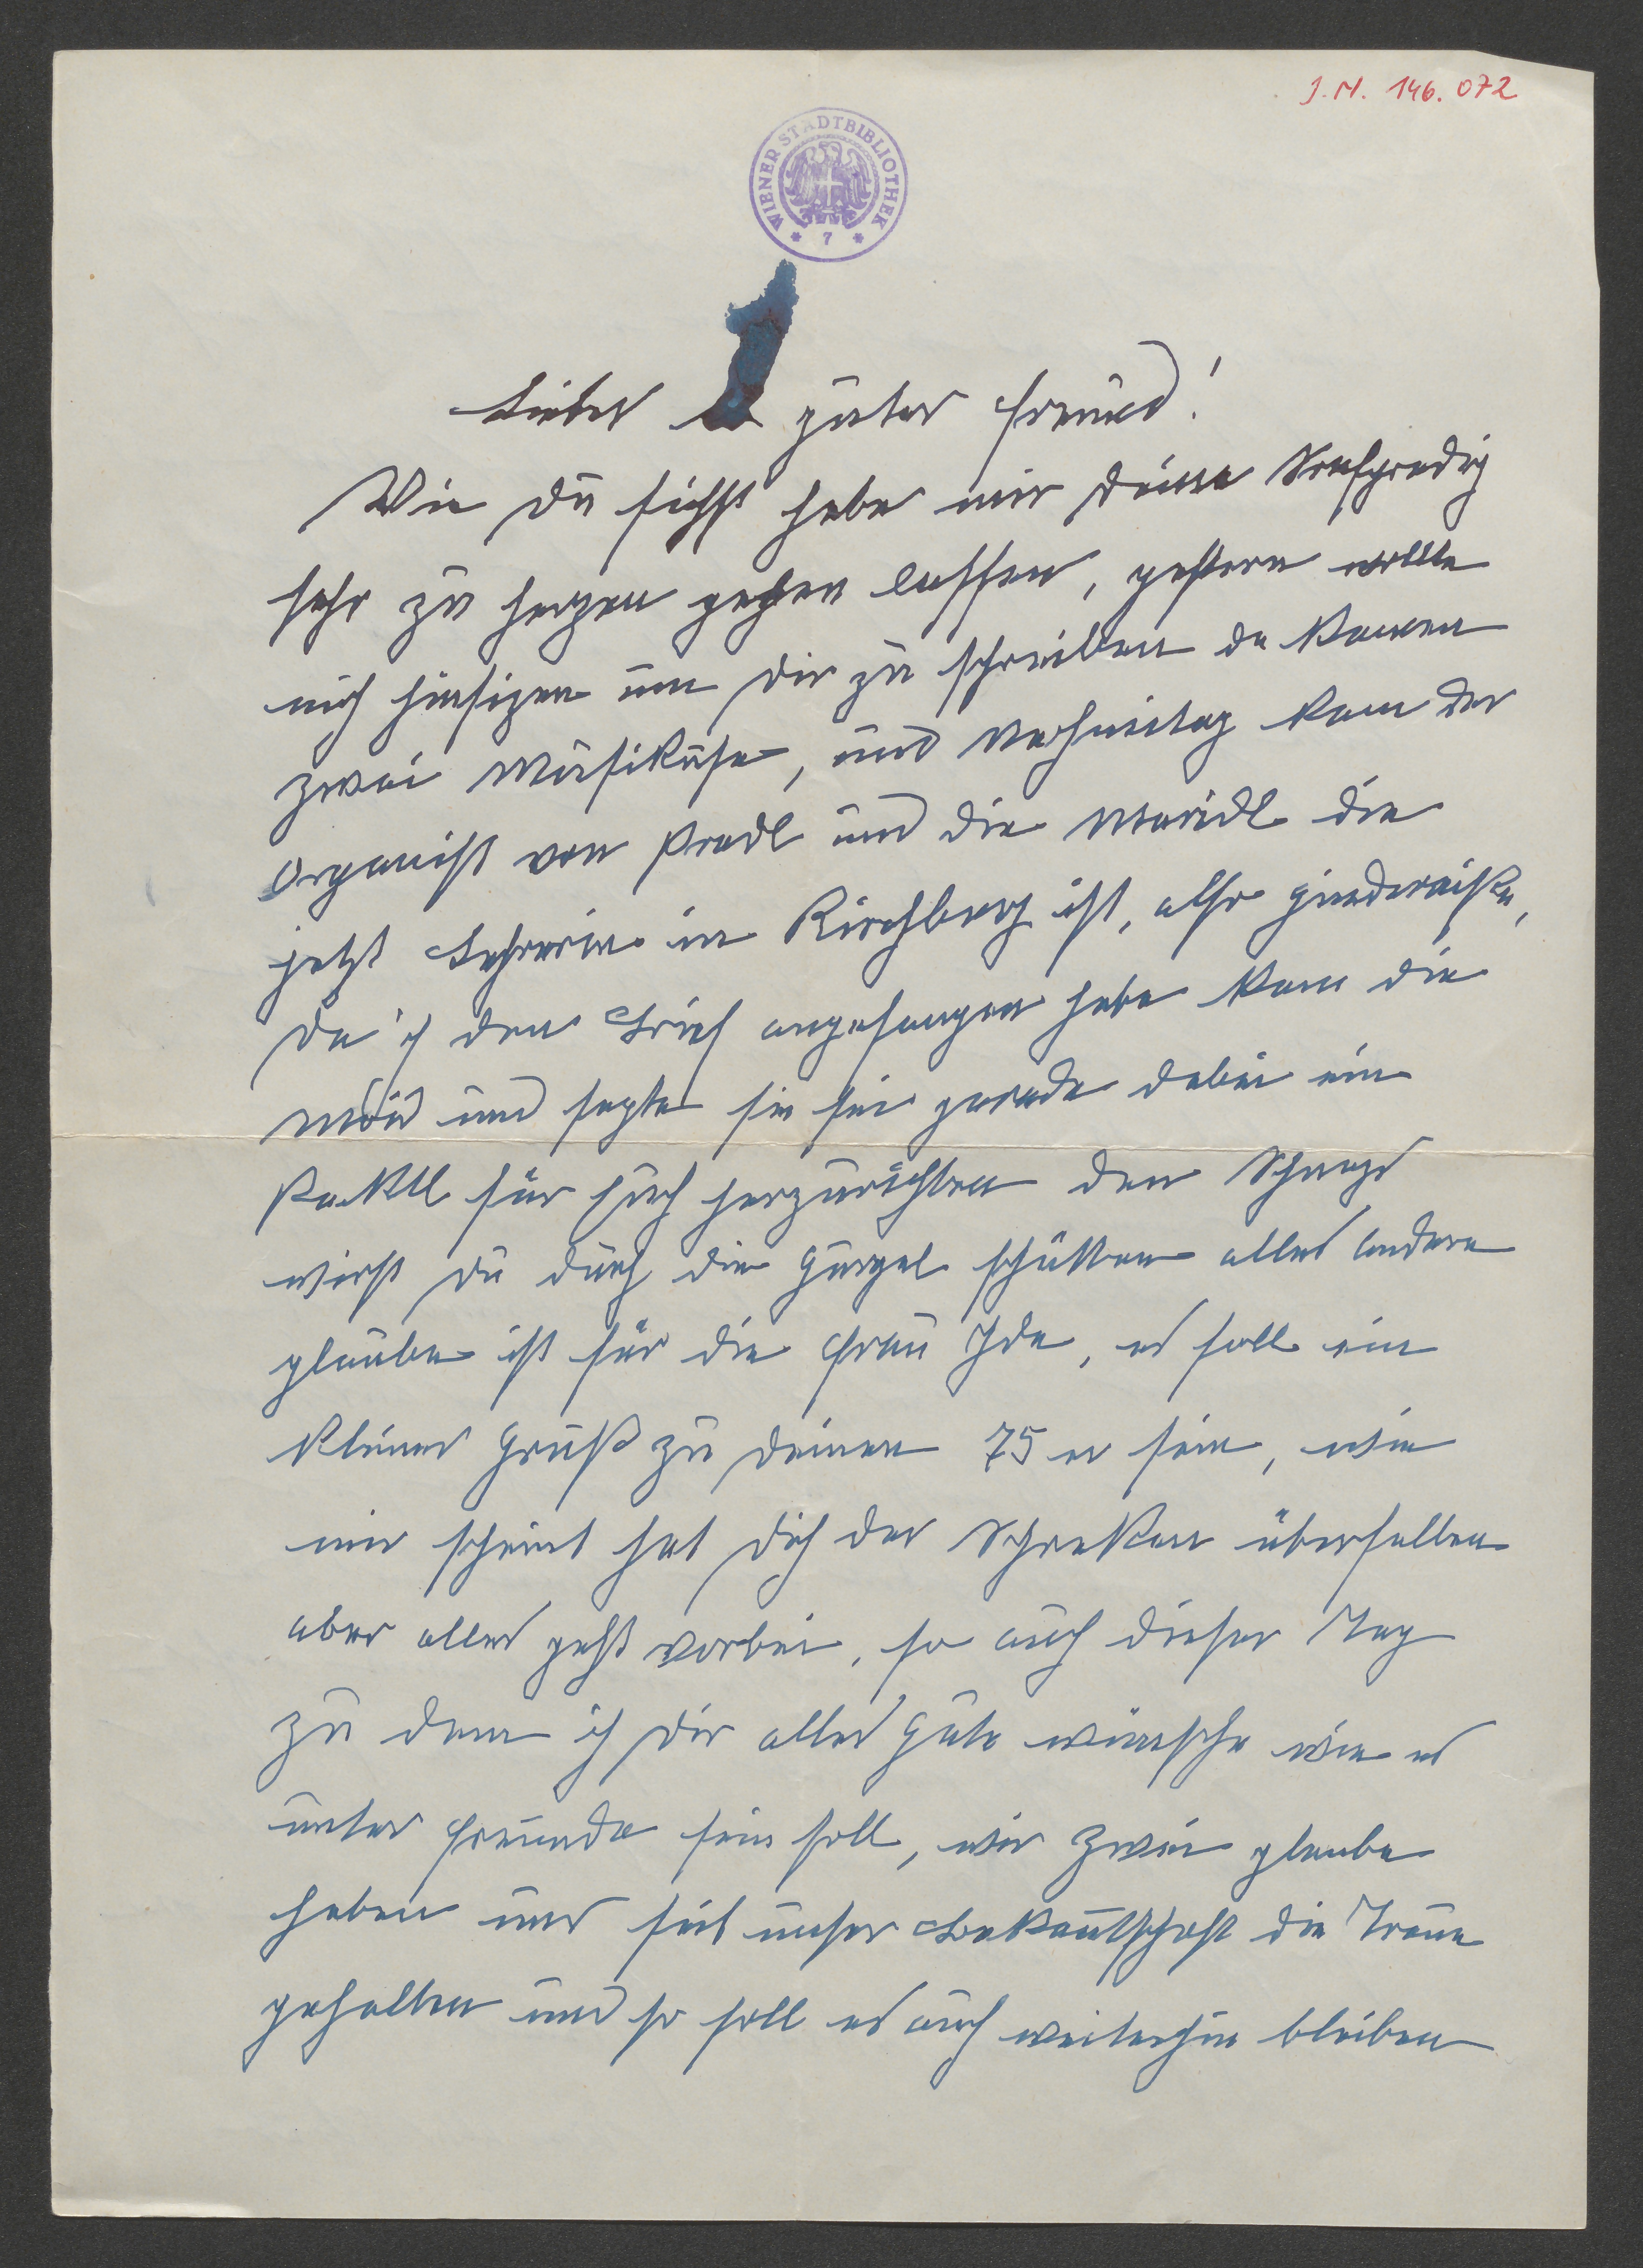 J.N. 146.072
WIENER STADTBIBLIOTHEK
* 7 *
Lieber guter Freund!
Wie du siehst habe mir deine Strafpredig
sehr zu herzen gehen lassen, gestern wollte
mich hinsizen um dir zu schreiben da kamen
zwei Musikuse, und Nachmittag kam der
Organist von Pradl und die Maridl die
jetzt Lehrerin in Kirchberg ist, also hindernisse,
da ich den Brief angefangen habe kam die
Moid und sagte sie sei gerade dabei ein
Paktl für Euch herzurichten den Schnaps
wirst du durch die Gurgel schütten alles andere
glaube ist für die Frau Ida, es soll ein
kleiner Gruß zu deinen 75 er sein, wie
mir scheint hat dich der Schreken überfallen
aber alles geht vorbei, so auch dieser Tag
zu dem ich dir alles Gute wünsche wie es
unter Freunde sein soll, wir zwei glaube
haben uns seit unser Bekantschaft die Treue
gehalten und so soll es auch weiterhin bleiben